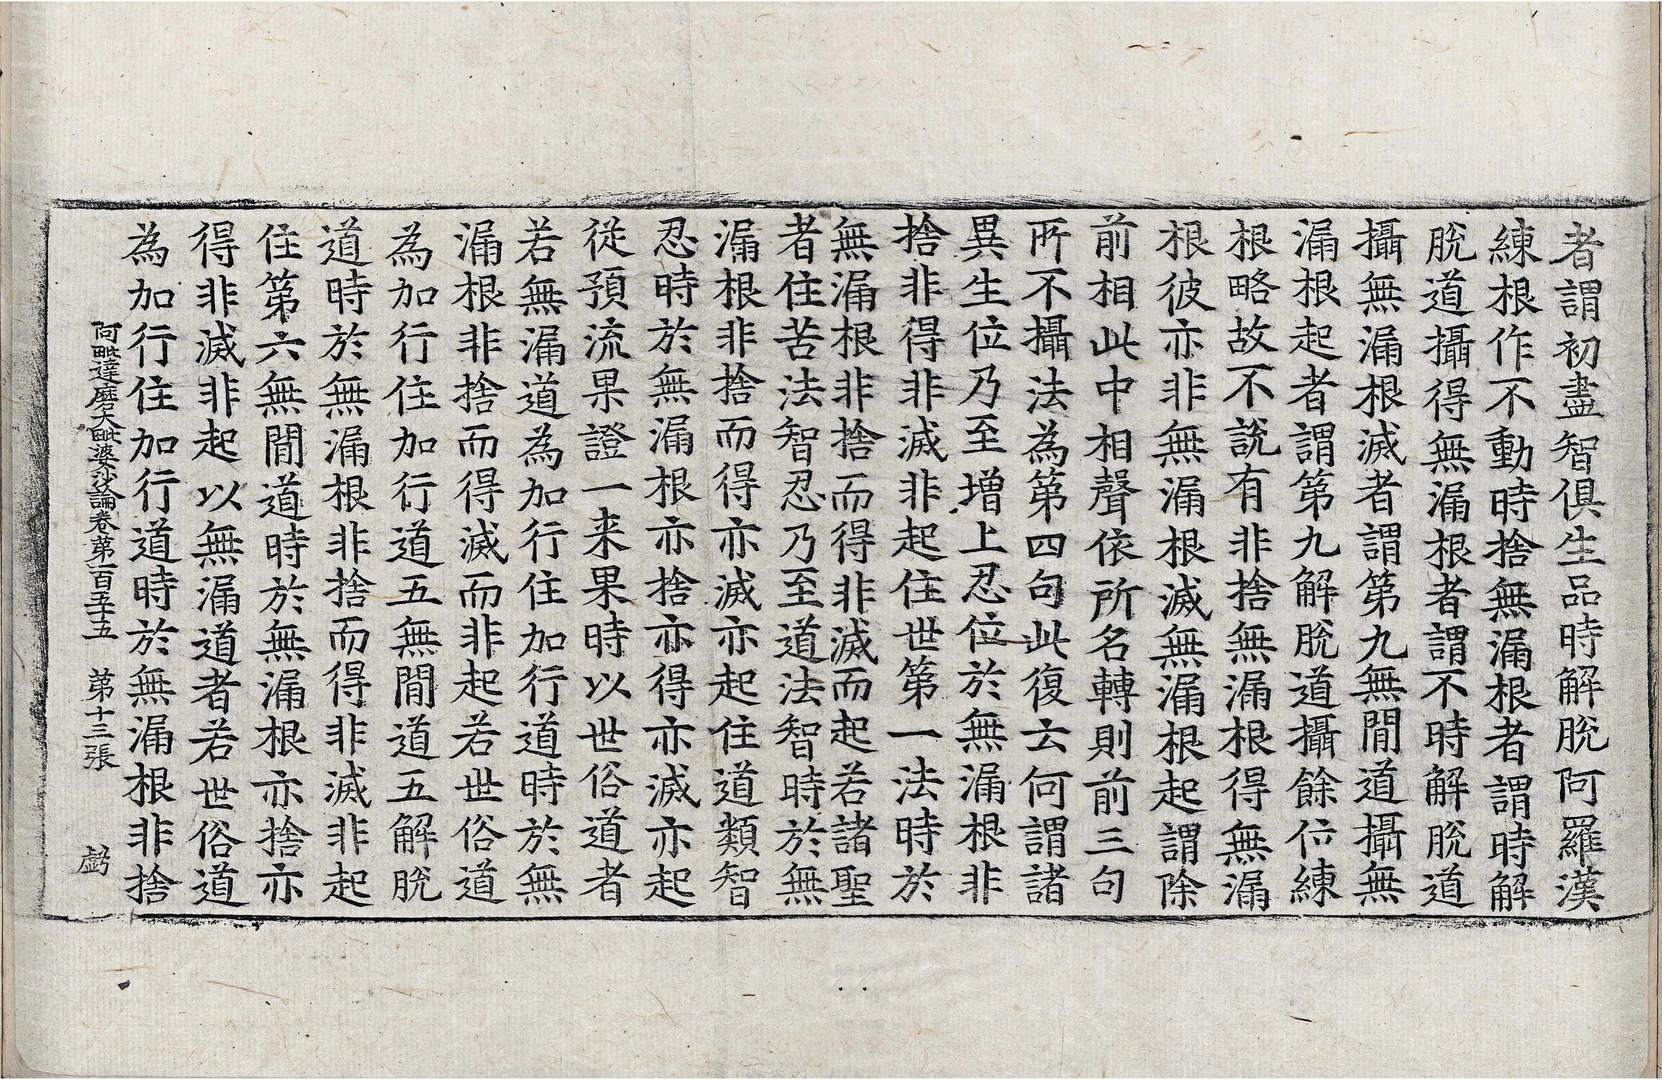 者謂初盡智俱生品時解脫阿羅漢
練根作不動時捨無漏根者謂時解
脫道攝得無漏根者謂不時解脫道
攝無漏根滅者謂第九無間道攝無
漏根起者謂第九解脫道攝餘位練
根略故不說有非捨無漏根得無漏
根彼亦非無漏根滅無漏根起謂除
前相此中相聲依所名轉則前三句
所不攝法為第四句此復云何謂諸
異生位乃至增上忍位於無漏根非
捨非得非滅非起住世第一法時於
無漏根非捨而得非滅而起若諸聖
者住苦法智忍乃至道法智時於無
漏根非捨而得亦滅亦起住道類智
忍時於無漏根亦捨亦得亦滅亦起
從預流果證一来果時以世俗道者
若無漏道為加行住加行道時於無
漏根非捨而得滅而非起若世俗道
為加行住加行道五無間道五解脫
道時於無漏根非捨而得非滅非起
住第六無間道時於無漏根亦捨亦
得非滅非起以無漏道者若世俗道
為加行住加行道時於無漏根非捨
阿毗達磨大毗婆沙論卷第一百五十五 第十三張 戲